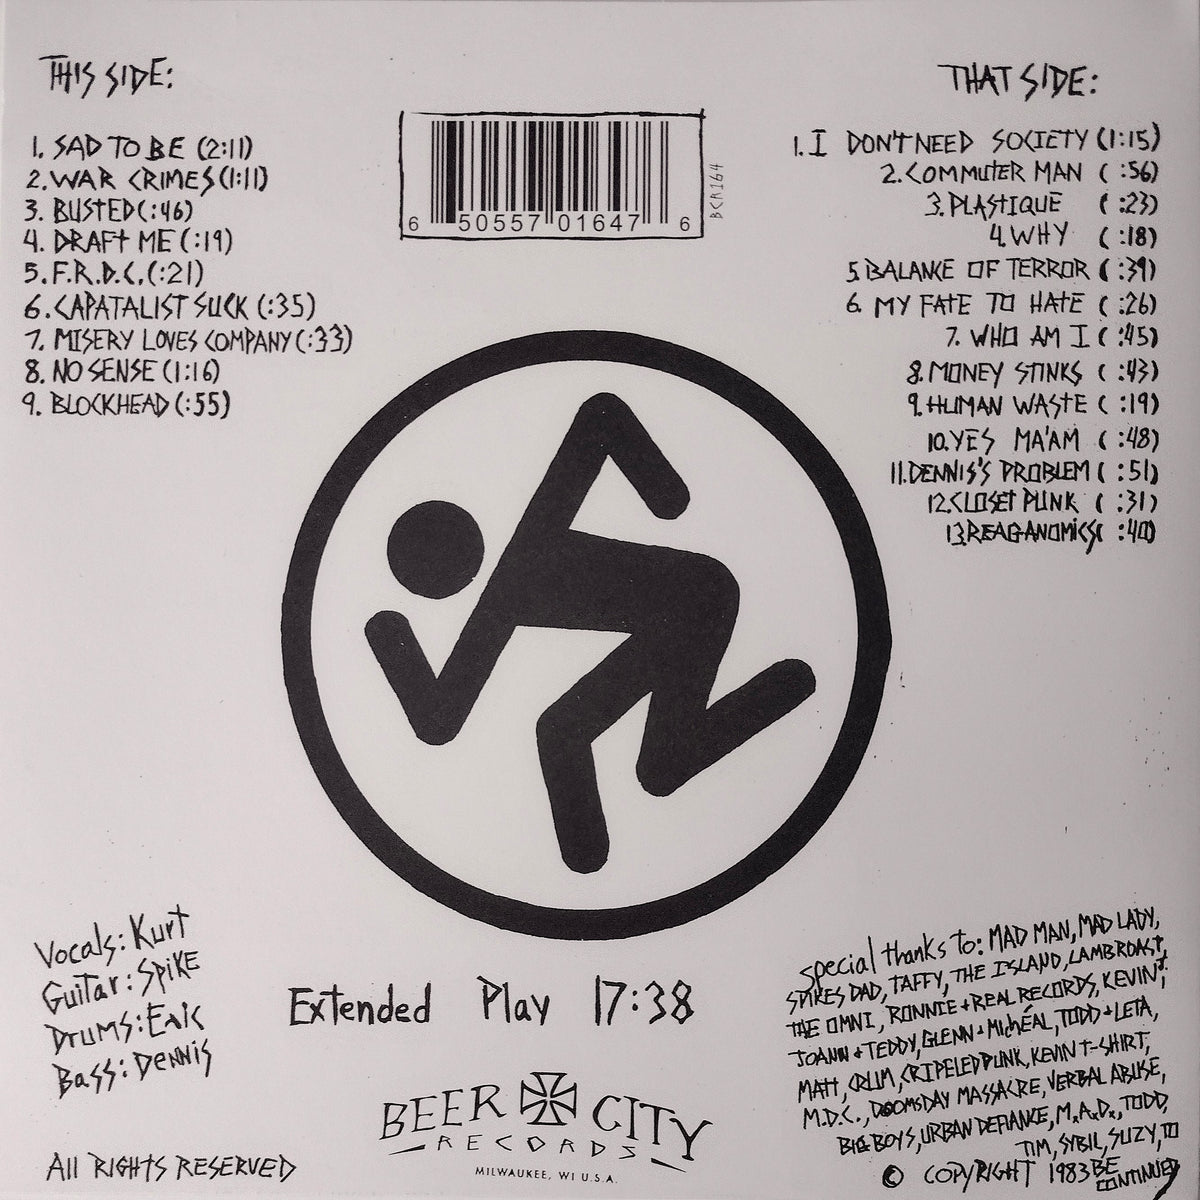 THIS SIDE:
1. SAD TO BE (2:11)
2. WAR CRIMES (1:11)
3. BUSTED (:46)
4. DRAFT ME (:19)
5. F.R.D.C. (:21)
6. CAPATALIST SUCK (:35)
7. MISERY LOVES COMPANY (:33)
8. NO SENSE (1:16)
9. BLOCKHEAD (:55)
6 50557 01647 6
BCR164
THAT SIDE:
1. I DON'T NEED SOCIETY (1:15)
2. COMMUTER MAN ( :56)
3. PLASTIQUE ( :23)
4. WHY ( :18)
5 BALANCE OF TERROR ( :39)
6. MY FATE TO HATE ( :26)
7. WHO AM I ( :45)
8. MONEY STINKS ( :43)
9. HUMAN WASTE ( :19)
10. YES MA'AM ( :48)
11. DENNIS'S PROBLEM ( :51)
12. CLOSET PUNK ( :31)
13. REAGANOMICS ( :40)
Vocals: Kurt
Guitar: Spike
Drums: Eric
Bass: Dennis
All RIGHTS RESERVED
Extended Play 17:38
BEER CITY
RECORDS
MILWAUKEE, WI U.S.A.
special thanks to: MAD MAN, MAD LADY,
SPIKES DAD, TAFFY, THE ISLAND, LAMBROAST,
THE OMNI, RONNIE + REAL RECORDS, KEVIN T.
JOANN + TEDDY, GLENN + MIchéAL, TODD + LETA,
MATT, CRUM, CRIPELED PUNK, KEVIN T-SHIRT,
M.D.C., DOOMSDAY MASSACRE, VERBAL ABUSE,
BIG BOYS, URBAN DEFIANCE, M.A.D., TODD,
TIM, SYBIL, SUZY, TO
BE CONTINUED
© COPYRIGHT 1983